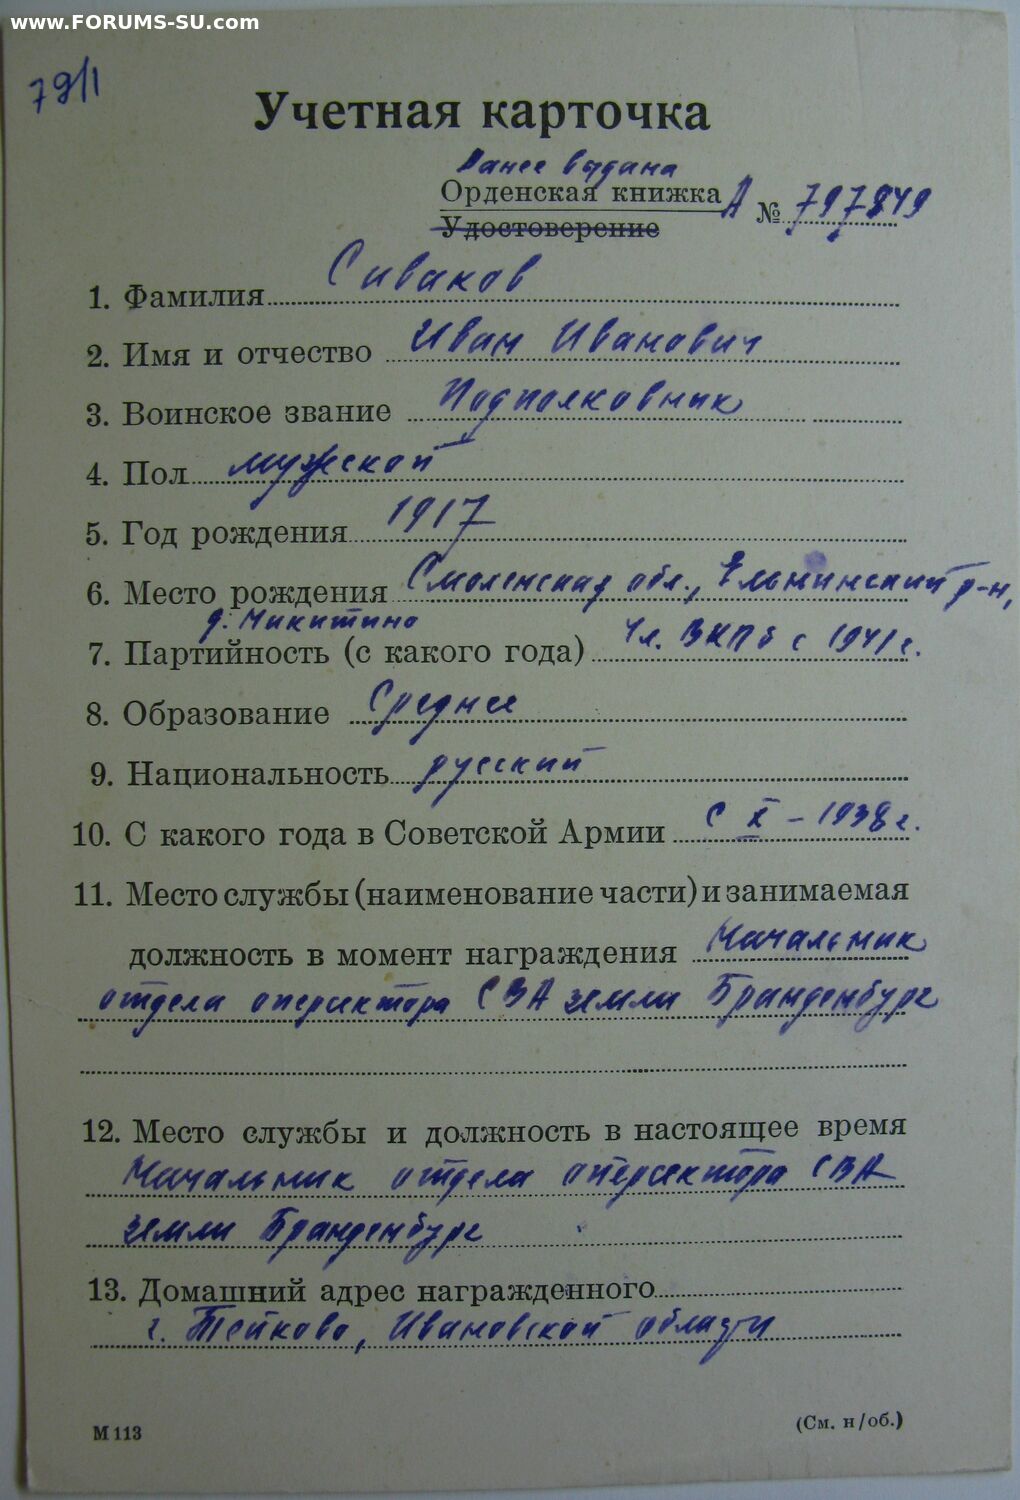 www.FORUMS-SU.com
79/1
Учетная карточка
Ранее выдана
Орденская книжка А № 797849
Удостоверение
1. Фамилия Сиваков
2. Имя и отчество Иван Иванович
3. Воинское звание Подполковник
4. Пол мужской
5. Год рождения 1917
6. Место рождения Смоленская обл., Ельнинский р-н,
д. Никитино
7. Партийность (с какого года) Чл. ВКПб с 1941 г.
8. Образование Среднее
9. Национальность русский
10. С какого года в Советской Армии С X – 1938 г.
11. Место службы (наименование части) и занимаемая
должность в момент награждения Начальник
отдела оперсектора СВА земли Бранденбург
12. Место службы и должность в настоящее время
Начальник отдела оперсектора СВА
земли Бранденбург
13. Домашний адрес награжденного
г. Тейково, Ивановской области
М 113
(См. н/об.)